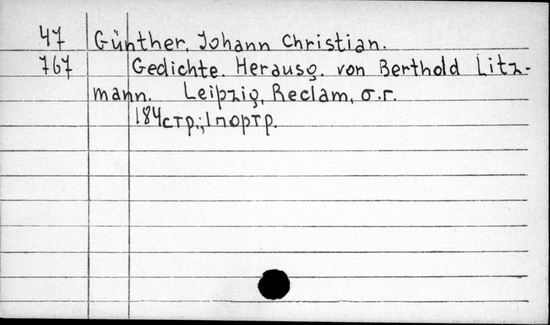 47 Günther, Johann Christian.
767 Gedichte. Herausg. von Berthold Litz-
mann. Leipzig, Reclam, o.r.
184стр.; 1портр.